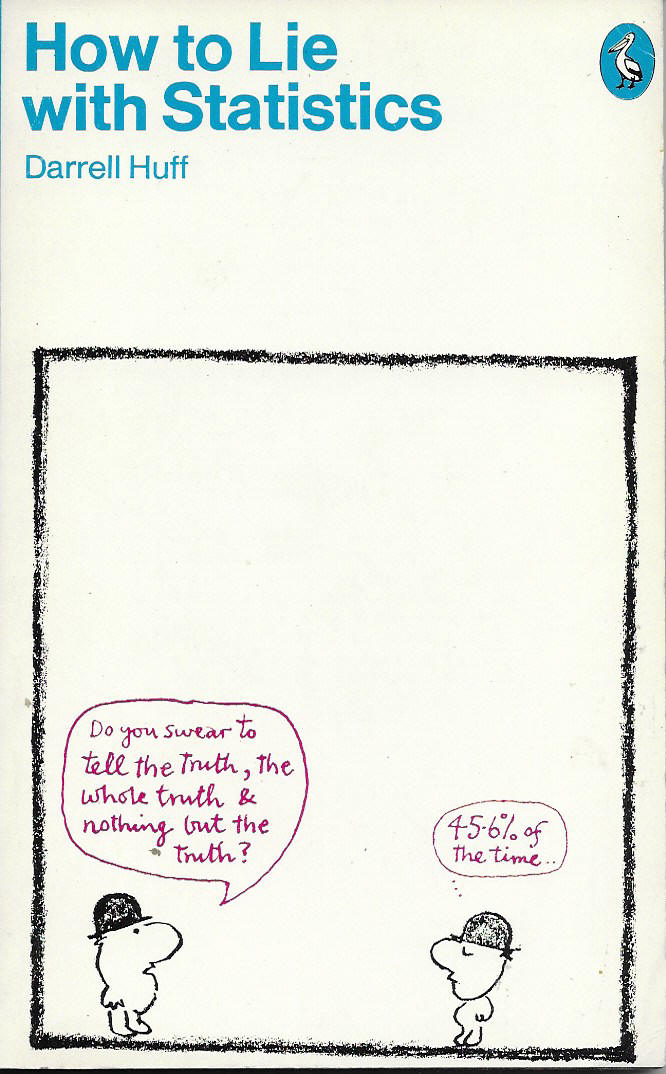 How to Lie
with Statistics
Darrell Huff
Do you swear to
tell the truth, the
whole truth &
nothing but the
truth?
45·6% of
the time..